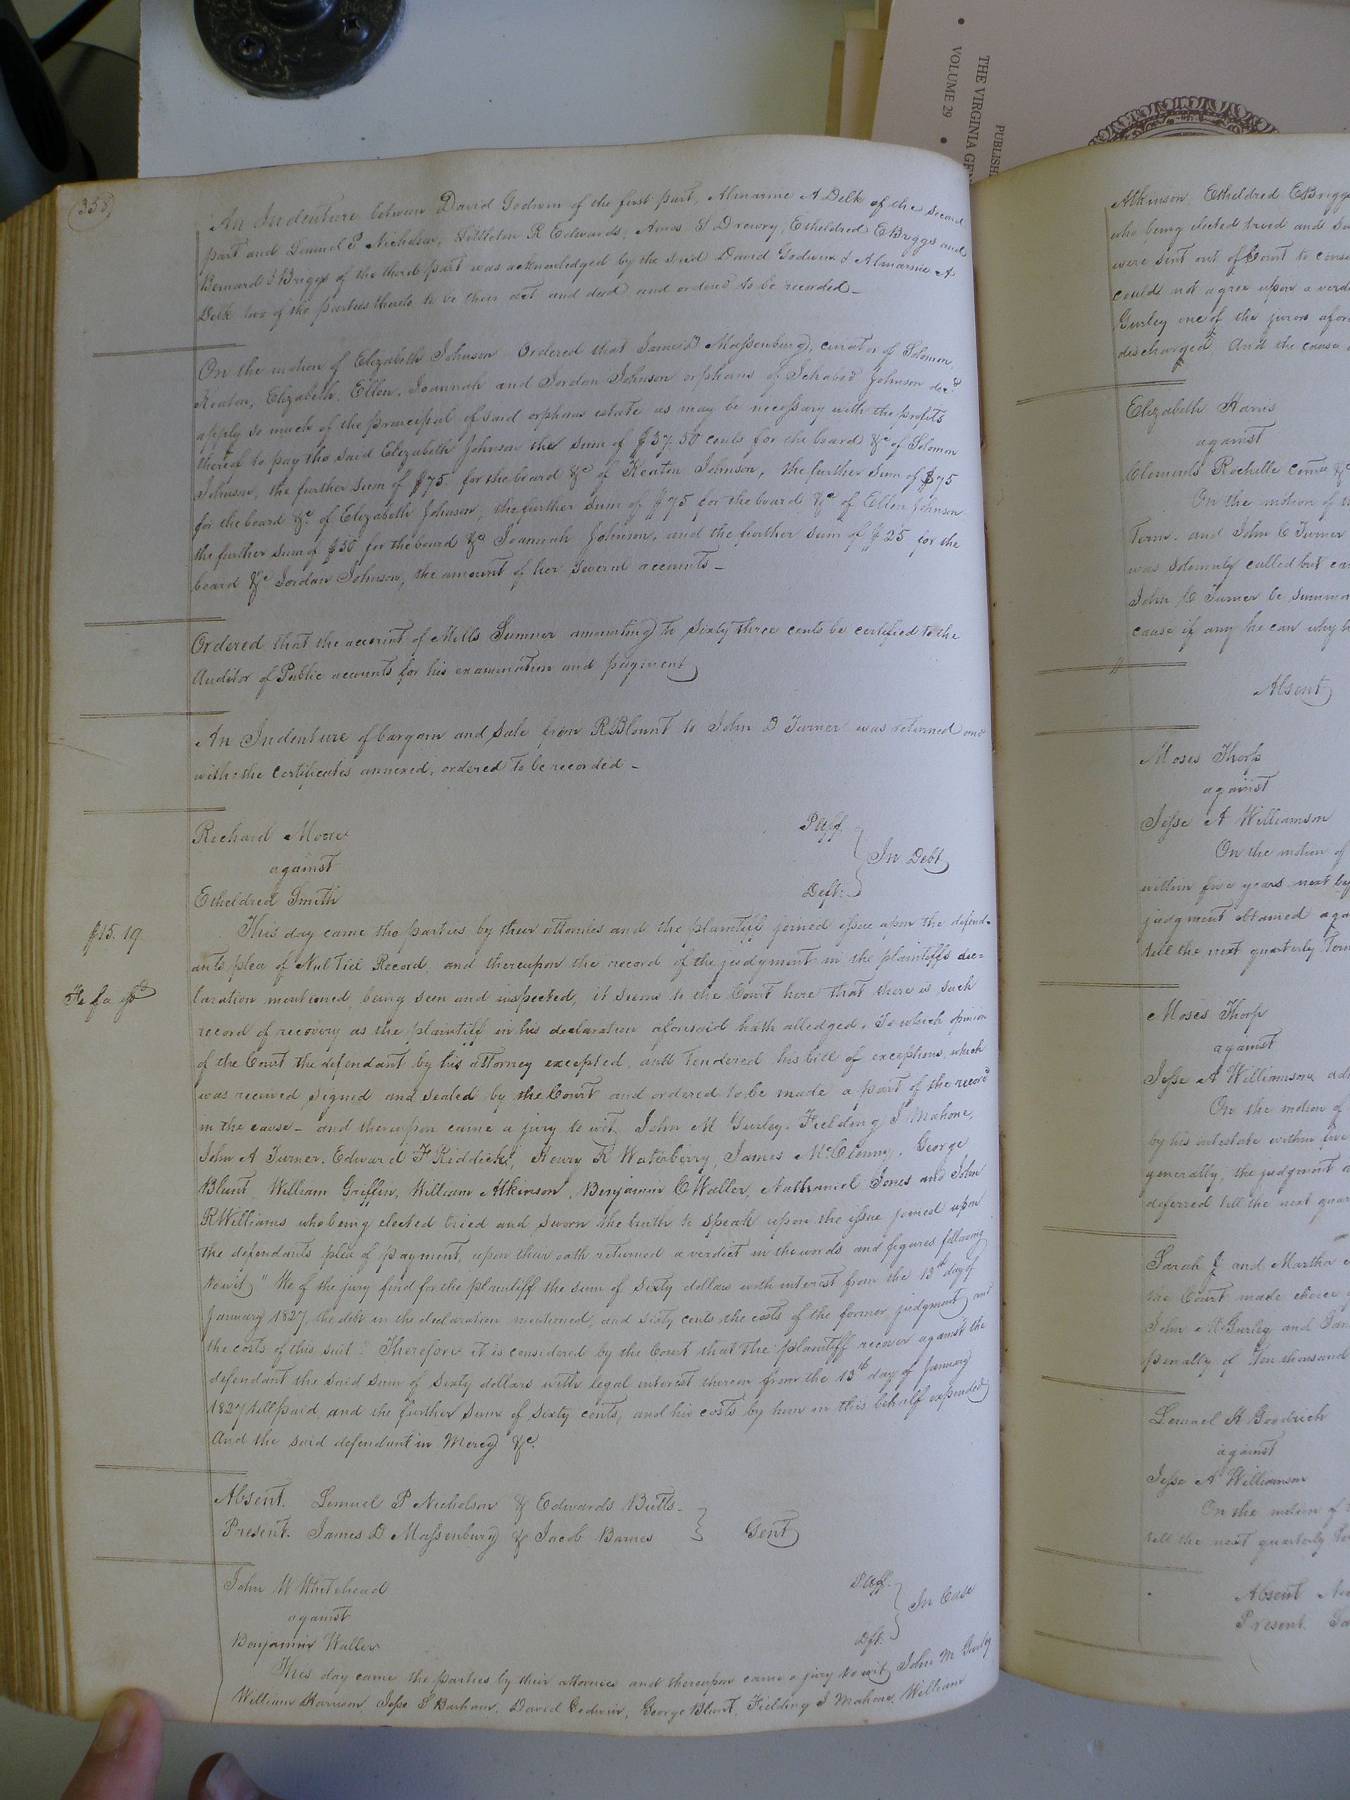 358
An Indenture between David Godwin of the first part, Almarine A Delk of the second
part and Lemuel P Nicholson, Littleton R Edwards, Amos S Drewry, Etheldred E Briggs and
Bernard S Briggs of the third part was acknowledged by the said David Godwin & Almarine A
Delk two of the parties thereto to be their act and deed and ordered to be recorded—
On the motion of Elizabeth Johnson Ordered that James D Massenburg, curator of Solomon,
Keaton, Elizabeth, Ellen, Joannah and Jordan Johnson orphans of Ichabod Johnson decd
apply so much of the principal of said orphans estate as may be necessary with the profits
thereof to pay the said Elizabeth Johnson the sum of $37.50 cents for the board &c of Solomon
Johnson, the further sum of $75 for the board &c of Keaton Johnson, the further sum of $75
for the board &c of Elizabeth Johnson, the further sum of $75 for the board &c of Ellen Johnson
the further sum of $50 for the board &c Joannah Johnson, and the further sum of $25 for the
board &c Jordan Johnson, the amount of her several accounts—
Ordered that the account of Mills Sumner amounting to Sixty three cents be certified to the
Auditor of Public accounts for his examination and payment
An Indenture of bargain and sale from R Blount to John D Turner was returned and
with the certificates annexed, ordered to be recorded—
Richard Moore Plff
against In Debt
Etheldred Smith Deft:
This day came the parties by their attornies and the plaintiff joined issue upon the defend-
$15.19
ants plea of Nul Tiel Record, and thereupon the record of the judgment in the plaintiffs dec-
Fi fa
laration mentioned being seen and inspected, it seems to the Court here that there is such
record of recovery as the plaintiff in his declaration aforesaid hath alledged. To which opinion
of the Court the defendant by his attorney excepted and tendered his bill of exceptions, which
was received signed and sealed by the Court and ordered to be made a part of the record
in the cause— and thereupon came a jury to wit, John M Gurley, Fielding J Mahone,
John A Turner, Edward F Riddick, Henry K Waterberry, James McClenny, George
Blunt, William Griffin, William Atkinson, Benjamin C Waller, Nathaniel Jones and John
R Williams who being elected tried and sworn the truth to speak upon the issue joined upon
the defendants plea of payment, upon their oath returned a verdict in the words and figures following
towit, "We of the jury find for the plaintiff the sum of Sixty dollars with interest from the 13th day of
January 1827 the debt in the declaration mentioned, and sixty cents the costs of the former judgment, and
the costs of this suit." Therefore it is considered by the Court that the plaintiff recover against the
defendant the said sum of Sixty dollars with legal interest thereon from the 13th day of January
1827 till paid, and the further sum of sixty cents, and his costs by him in this behalf expended
And the said defendant in Mercy &c.
Absent. Lemuel P Nicholson & Edwards Butts—
Present. James D Massenburg & Jacob Barnes Gent
John W Whitehead Plff.
against In Case
Benjamin Waller Dft:
This day came the parties by their attornies and thereupon came a jury to wit, John M Gurley
William Harrison, Jesse S Barham, David Godwin, George Blunt, Fielding J Mahone, William
Atkinson, Etheldred E Briggs
who being elected tried and
were sent out of Court to
could not agree upon a
Gurley one of the jurors
discharged And the cause
Elizabeth Harris
against
Clements Rochelle
On the motion of
Term. and John C Turner
was solemnly called but
John C Turner be
cause if any he can why
Absent
Moses Thorp
against
Jesse A Williamson
On the motion of
within five years next
judgment obtained
till the next quarterly Term
Moses Thorp
against
Jesse A Williamson
On the motion of
by his intestate within five
generally, the judgment
deferred till the next
Sarah J and Martha
the Court made choice
John M Gurley and
penalty of Ten thousand
Lemuel H Goodrich
against
Jesse A Williamson
On the motion of
till the next quarterly
Absent
Present
THE VIRGINIA GE
VOLUME 29
PUBLISH